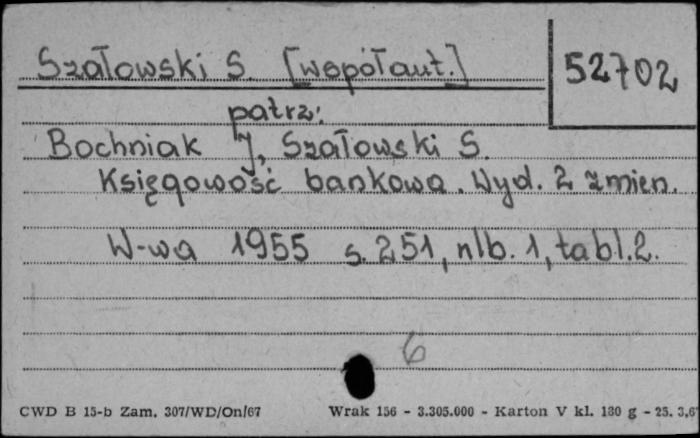 Szałowski S. [współaut.]
52702
patrz:
Bochniak J, Szałowski S.
Księgowość bankowa. Wyd. 2 zmien.
W-wa 1955 s. 251, nlb. 1, tabl. 2.
6
CWD B 15-b Zam. 307/WD/On/67 Wrak 156 - 3.305.000 - Karton V kl. 180 g - 25. 3,6